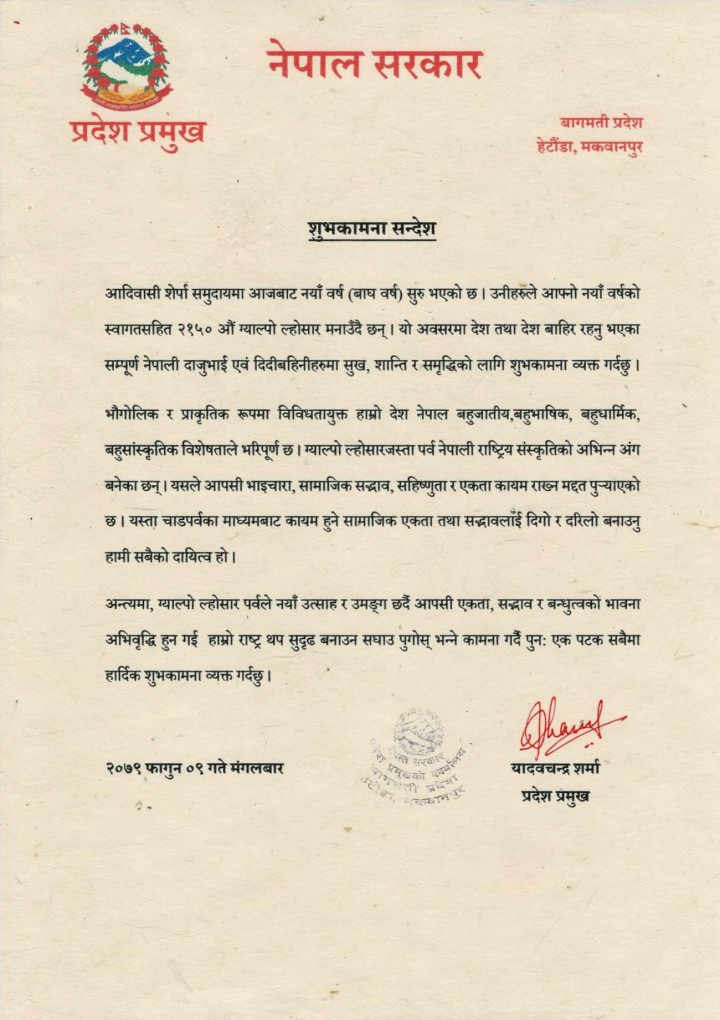 नेपाल सरकार
प्रदेश प्रमुख
बागमती प्रदेश
हेटौंडा, मकवानपुर
शुभकामना सन्देश
आदिवासी शेर्पा समुदायमा आजबाट नयाँ वर्ष (बाघ वर्ष) सुरु भएको छ । उनीहरुले आफ्नो नयाँ वर्षको
स्वागतसहित २१५० औं ग्याल्पो ल्होसार मनाउँदै छन् । यो अवसरमा देश तथा देश बाहिर रहनु भएका
सम्पूर्ण नेपाली दाजुभाई एवं दिदीबहिनीहरुमा सुख, शान्ति र समृद्धिको लागि शुभकामना व्यक्त गर्दछु ।
भौगोलिक र प्राकृतिक रूपमा विविधतायुक्त हाम्रो देश नेपाल बहुजातीय,बहुभाषिक, बहुधार्मिक,
बहुसांस्कृतिक विशेषताले भरिपूर्ण छ । ग्याल्पो ल्होसारजस्ता पर्व नेपाली राष्ट्रिय संस्कृतिको अभिन्न अंग
बनेका छन् । यसले आपसी भाइचारा, सामाजिक सद्भाव, सहिष्णुता र एकता कायम राख्न मद्दत पुऱ्याएको
छ । यस्ता चाडपर्वका माध्यमबाट कायम हुने सामाजिक एकता तथा सद्भावलाई दिगो र दरिलो बनाउनु
हामी सबैको दायित्व हो ।
अन्त्यमा, ग्याल्पो ल्होसार पर्वले नयाँ उत्साह र उमङ्ग छर्दै आपसी एकता, सद्भाव र बन्धुत्वको भावना
अभिवृद्धि हुन गई हाम्रो राष्ट्र थप सुदृढ बनाउन सघाउ पुगोस् भन्ने कामना गर्दै पुन: एक पटक सबैमा
हार्दिक शुभकामना व्यक्त गर्दछु ।
२०७९ फागुन ०९ गते मंगलबार
नेपाल सरकार
प्रदेश प्रमुखको कार्यालय
बागमती प्रदेश
हेटौंडा, मकवानपुर
यादवचन्द्र शर्मा
प्रदेश प्रमुख